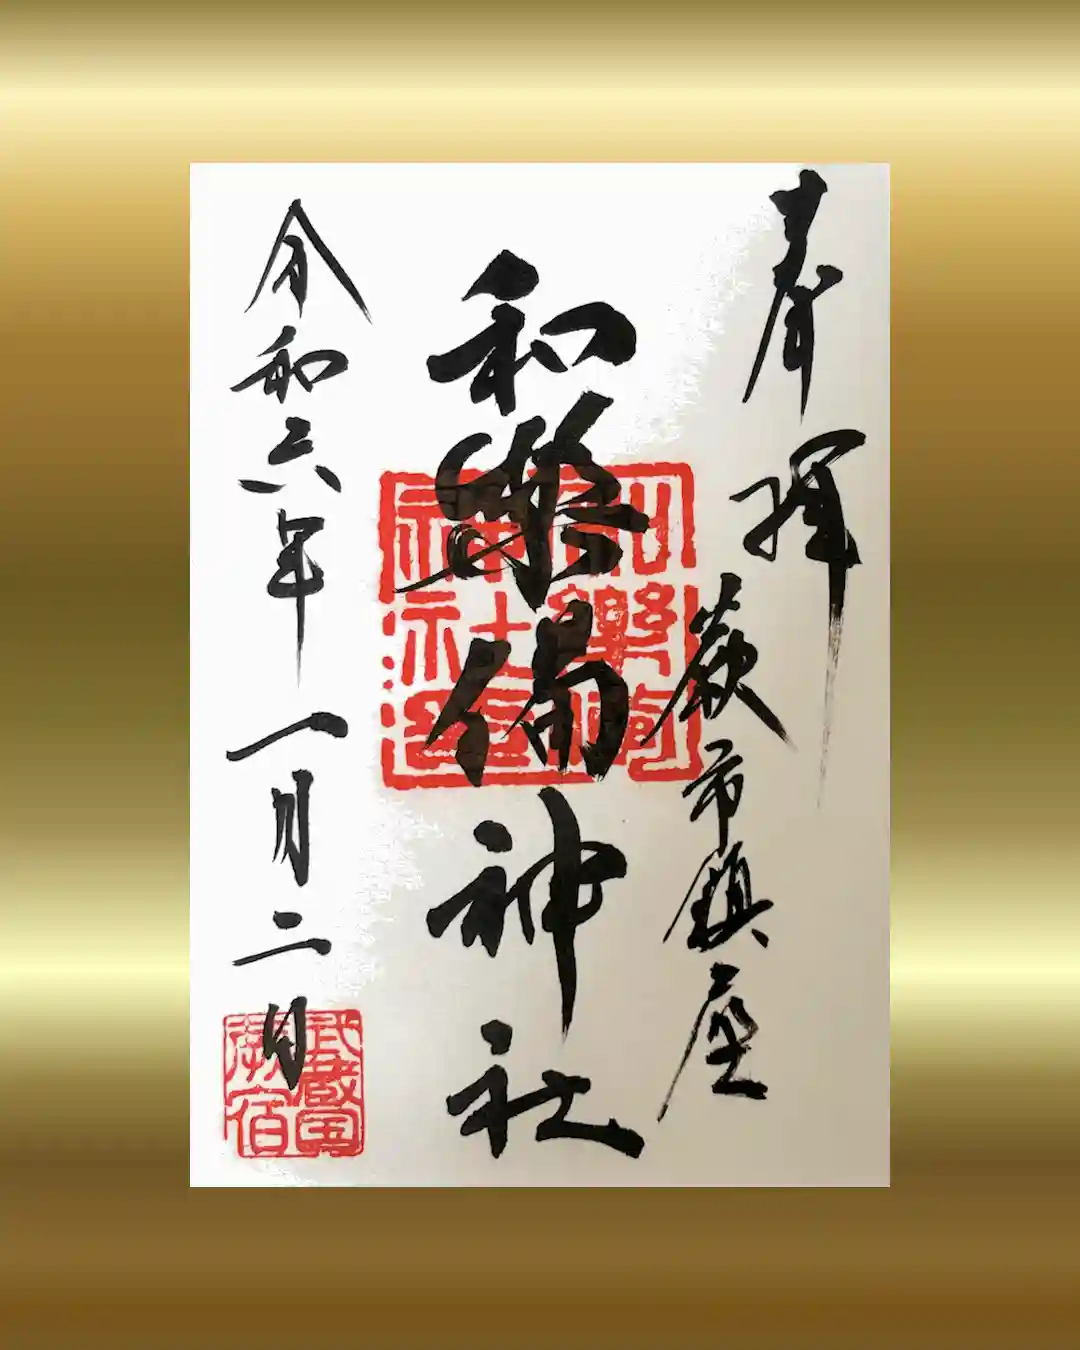 奉拝
蕨市鎮座
和樂備神社
令和六年一月二日
和樂備
神社璽
武蔵国
蕨宿